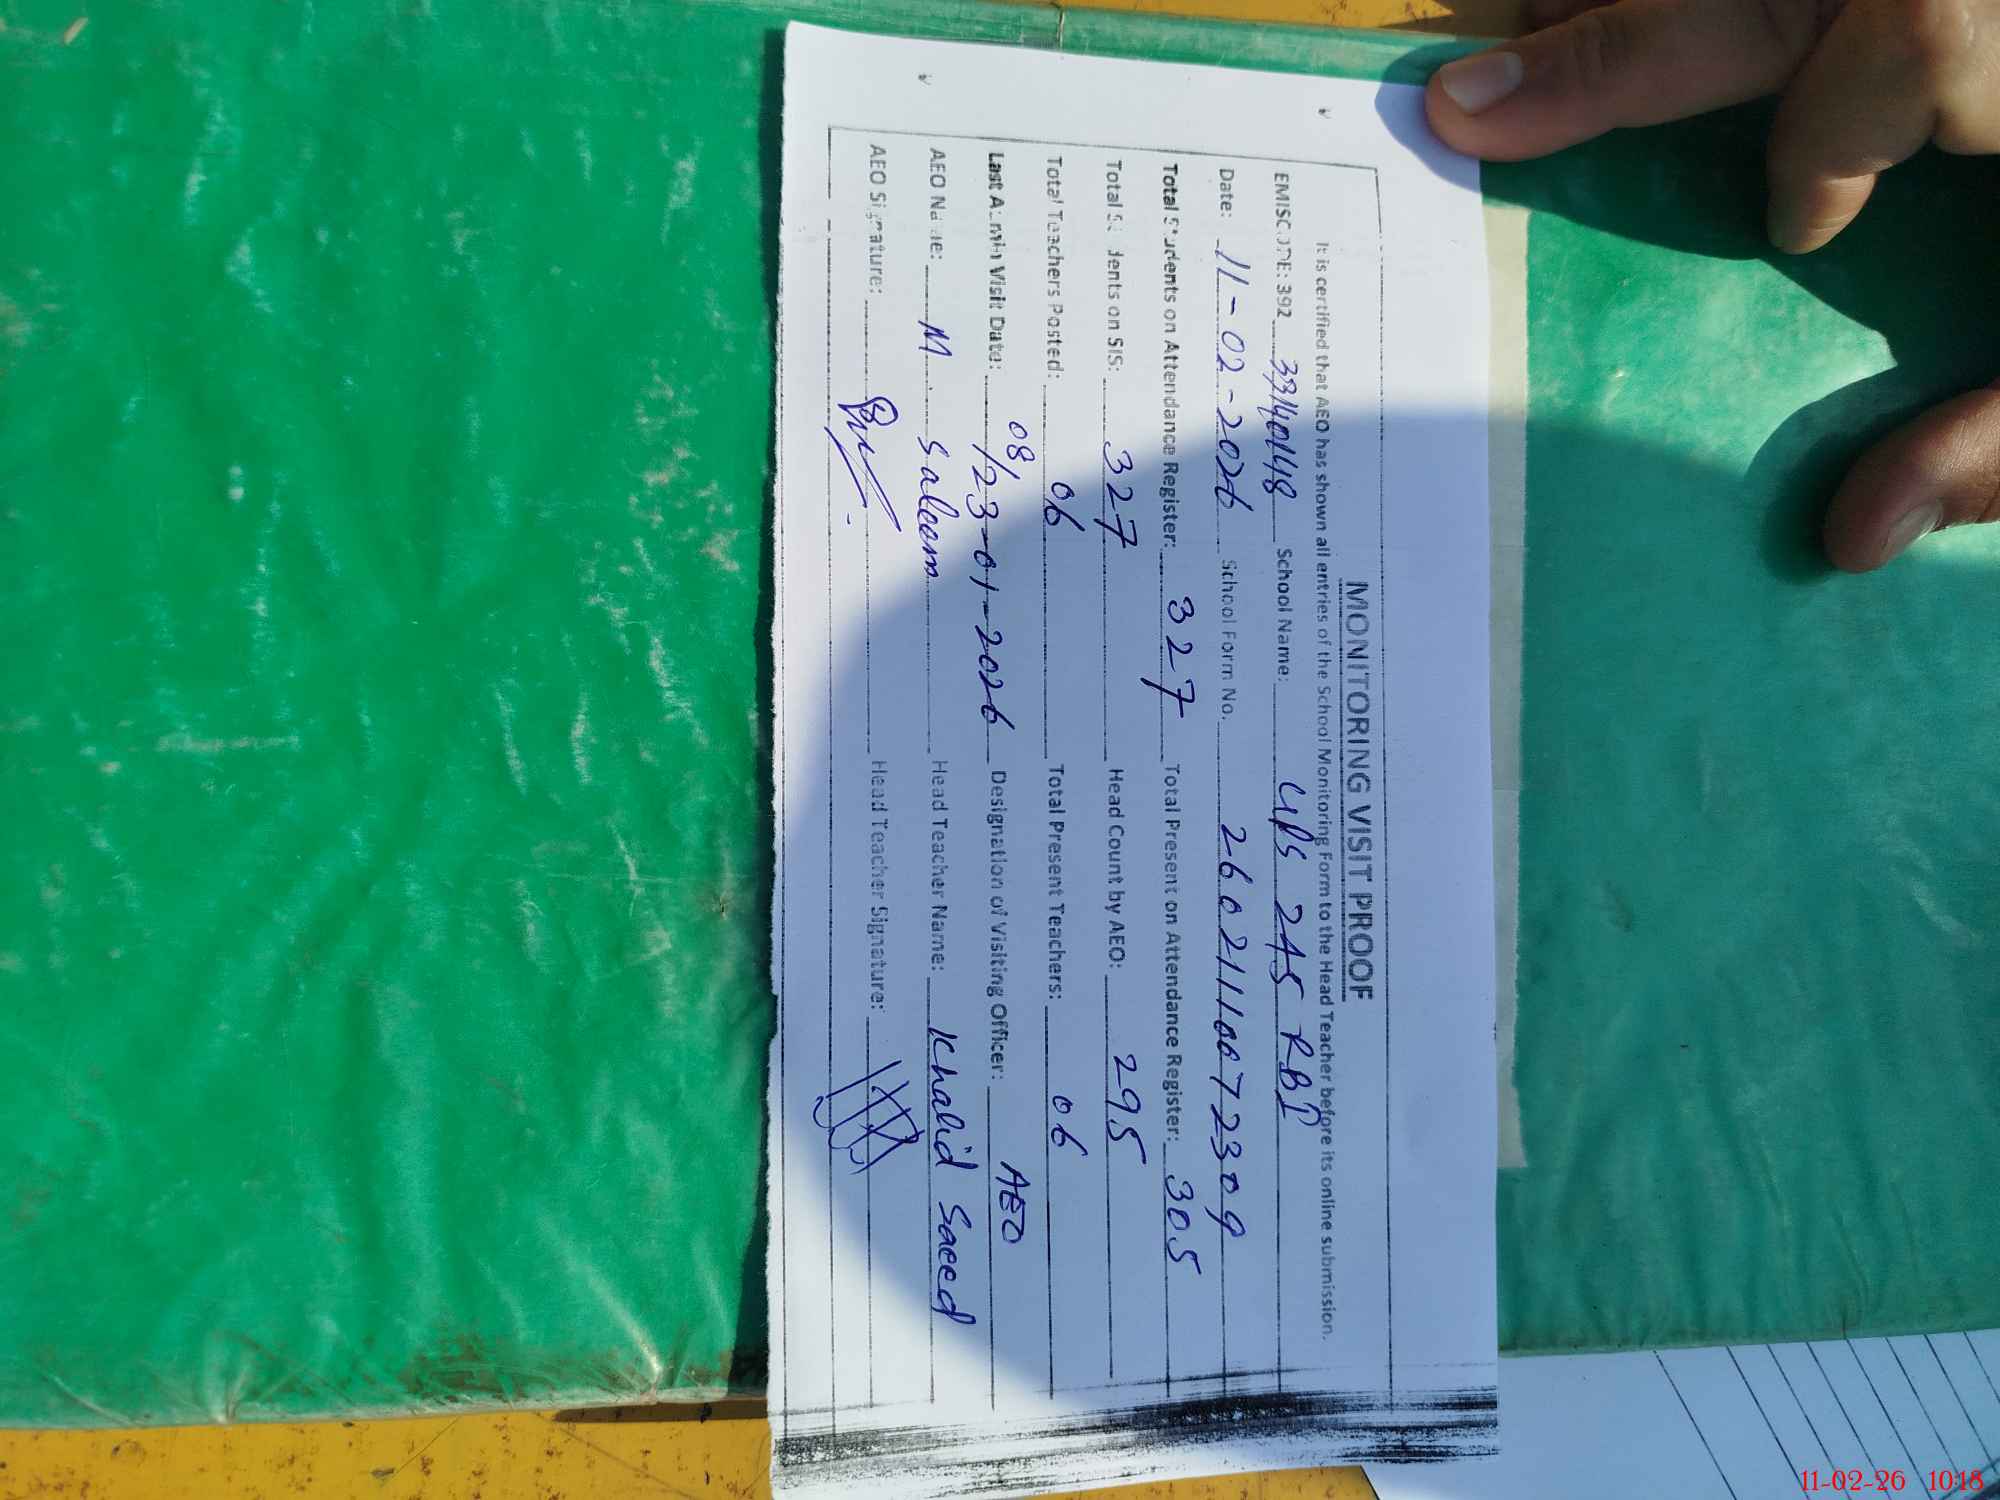 MONITORING VISIT PROOF
It is certified that AEO has shown all entries of the School Monitoring Form to the Head Teacher before its online submission.
EMISCODE: 392 School Name: 245 RBI
Date: 11-02-2026 School Form No. 26021110072309
Total Students on Attendance Register: 327 Total Present on Attendance Register: 305
Total Students on SIS: 327 Head Count by AEO: 295
Total Teachers Posted: 06 Total Present Teachers: 06
Last Admin Visit Date: 08/23-01-2026 Designation of Visiting Officer: AEO
AEO Name: M. Saleem Head Teacher Name: Khalid Saeed
AEO Signature: Head Teacher Signature:
11-02-26 10:18